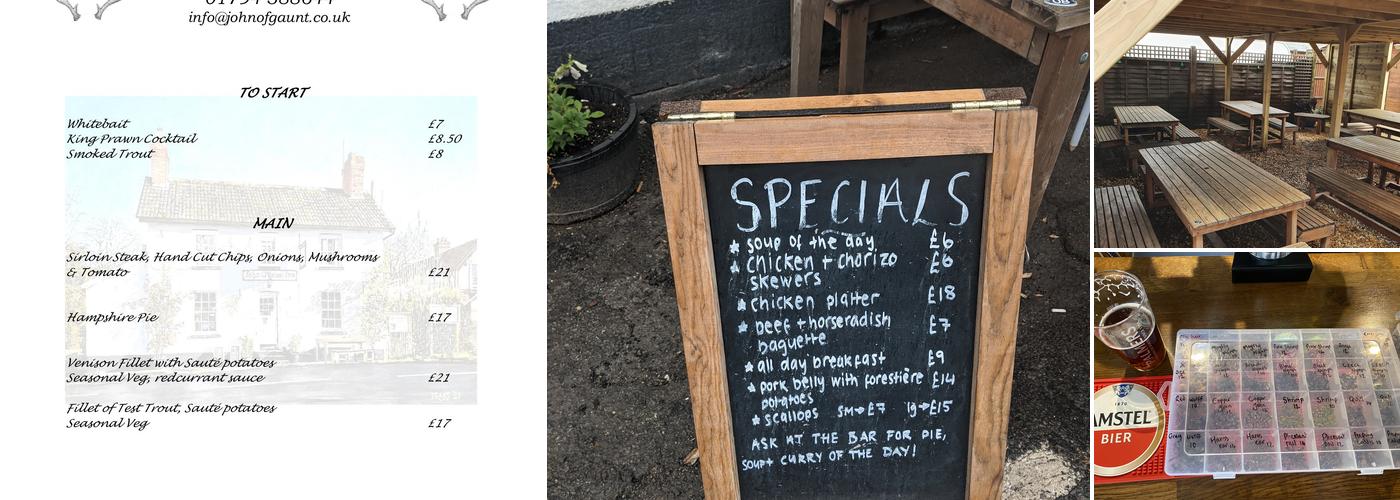 info@johnofgaunt.co.uk
TO START
Whitebait £7
King Prawn Cocktail £8.50
Smoked Trout £8
MAIN
Sirloin Steak, Hand Cut Chips, Onions, Mushrooms
& Tomato £21
Hampshire Pie £17
Venison Fillet with Sauté potatoes
Seasonal Veg, redcurrant sauce £21
Fillet of Test Trout, Sauté potatoes
Seasonal Veg £17
SPECIALS
soup of the day £6
chicken + chorizo £6
skewers
chicken platter £18
beef + horseradish £7
baguette
all day breakfast £9
pork belly with forestière £14
potatoes
scallops sm→£7 lg→£15
ASK AT THE BAR FOR PIE,
SOUP + CURRY OF THE DAY!
1870
AMSTEL
BIER
Shrimp
Shrimp